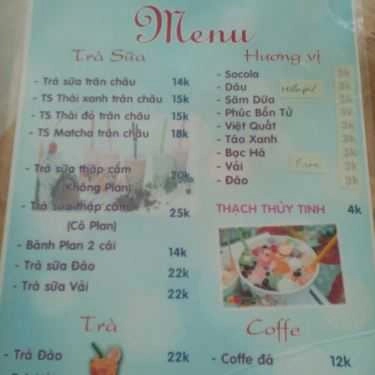 Menu
Trà Sữa
- Trà sữa trân châu 14k
- TS Thái xanh trân châu 15k
- TS Thái đỏ trân châu 15k
- TS Matcha trân châu 18k
- Trà sữa thập cẩm 20k
(Không Plan)
- Trà sữa thập cẩm 25k
(Có Plan)
- Bánh Plan 2 cái 14k
- Trà sữa Đào 22k
- Trà sữa Vải 22k
Trà
- Trà Đào 22k
Hương vị
- Socola 3k
- Dâu 3k
- Sầm Dứa 3k
- Phúc Bồn Tử 3k
- Việt Quất 3k
- Táo Xanh 3k
- Bạc Hà 3k
- Vải 3k
- Đào 3k
THẠCH THỦY TINH 4k
Coffe
- Coffe đá 12k